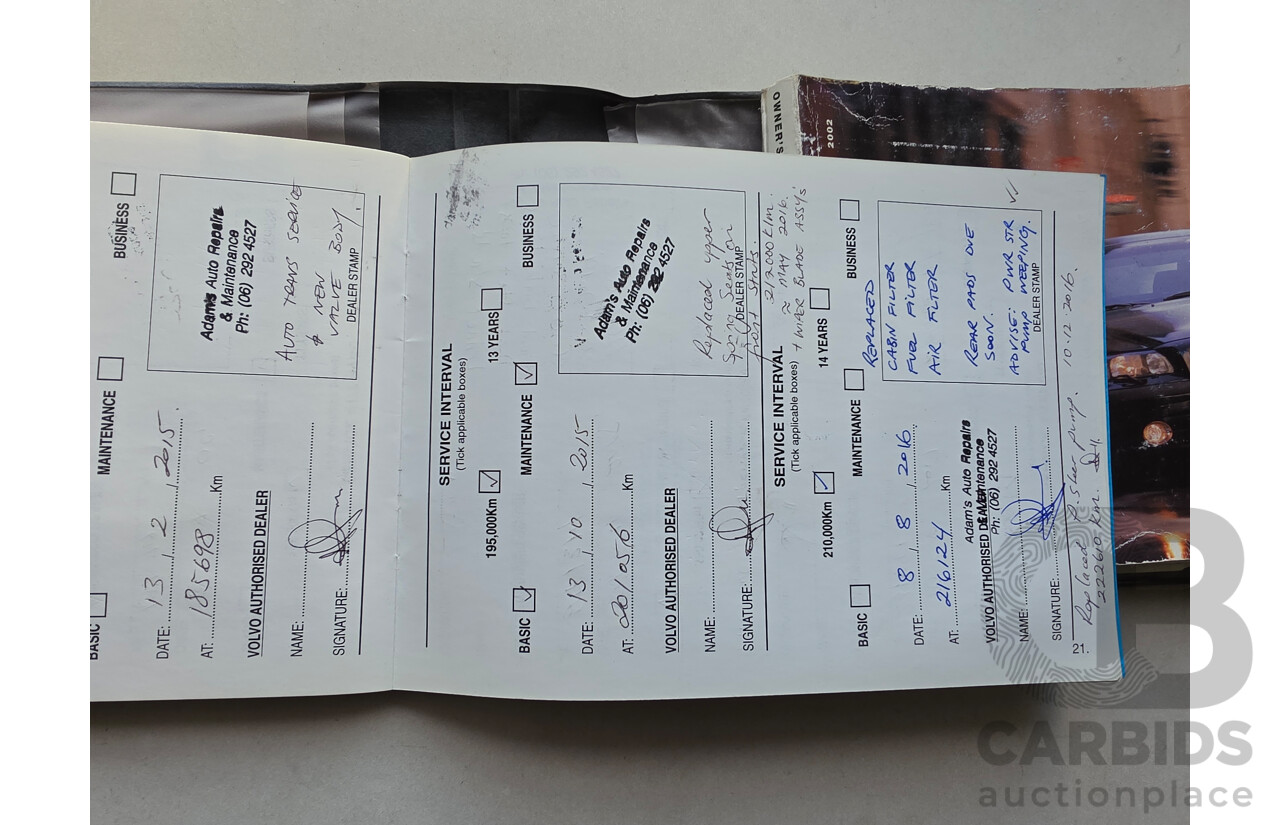 BASIC
MAINTENANCE
BUSINESS
DATE: 13 . 2 . 2015.
AT: 185698 Km
VOLVO AUTHORISED DEALER
NAME:
SIGNATURE:
Adam's Auto Repairs
& Maintenance
Ph: (06) 292 4527
AUTO TRANS SERVICE
& NEW
VALVE BODY.
DEALER STAMP
SERVICE INTERVAL
(Tick applicable boxes)
195,000Km
13 YEARS
BASIC
MAINTENANCE
BUSINESS
DATE: 13 . 10 . 2015
AT: 201056 Km
VOLVO AUTHORISED DEALER
NAME:
SIGNATURE:
Adam's Auto Repairs
& Maintenance
Ph: (06) 292 4527
Replaced upper
Spring Seats on
DEALER STAMP
front struts.
212000 Klm
≈ MAY 2016.
+ WIPER BLADE ASSY's
SERVICE INTERVAL
(Tick applicable boxes)
210,000Km
14 YEARS
BASIC
MAINTENANCE
BUSINESS
DATE: 8 . 8 . 2016
AT: 216124 Km
Adam's Auto Repairs
& Maintenance
Ph: (06) 292 4527
VOLVO AUTHORISED DEALER
NAME:
SIGNATURE:
REPLACED
CABIN FILTER
FUEL FILTER
AIR FILTER
REAR PADS DUE
SOON.
ADVISE: PWR STR
PUMP WEEPING.
DEALER STAMP
Replaced P. Steer pump. 10.12.2016.
222610 km.
21.
OWNER'S
2002
CARBIDS
auctionplace